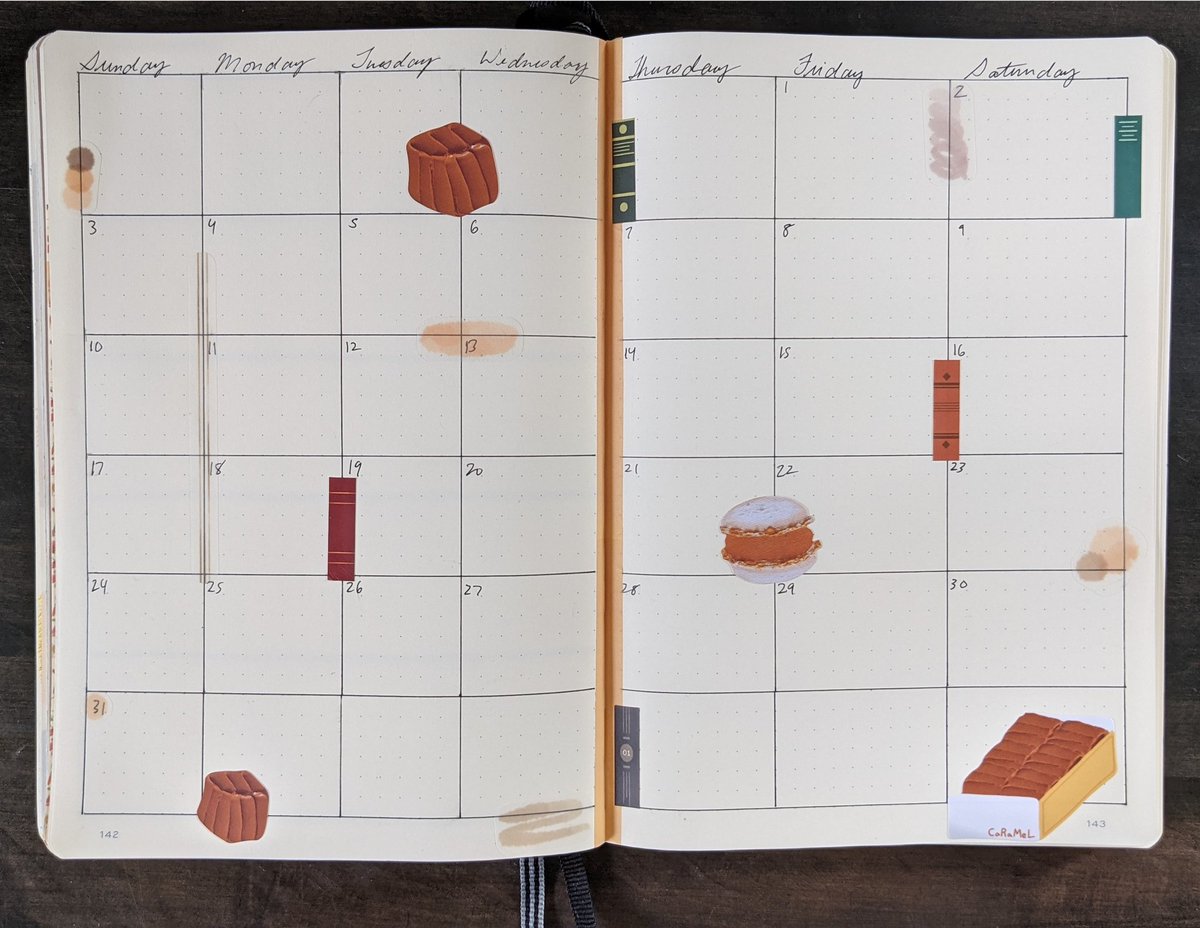 Sunday Monday Tuesday Wednesday Thursday Friday Saturday
1 2
3 4 5 6 7 8 9
10 11 12 13 14 15 16
17 18 19 20 21 22 23
24 25 26 27 28 29 30
31
01
CaRaMeL
142 143